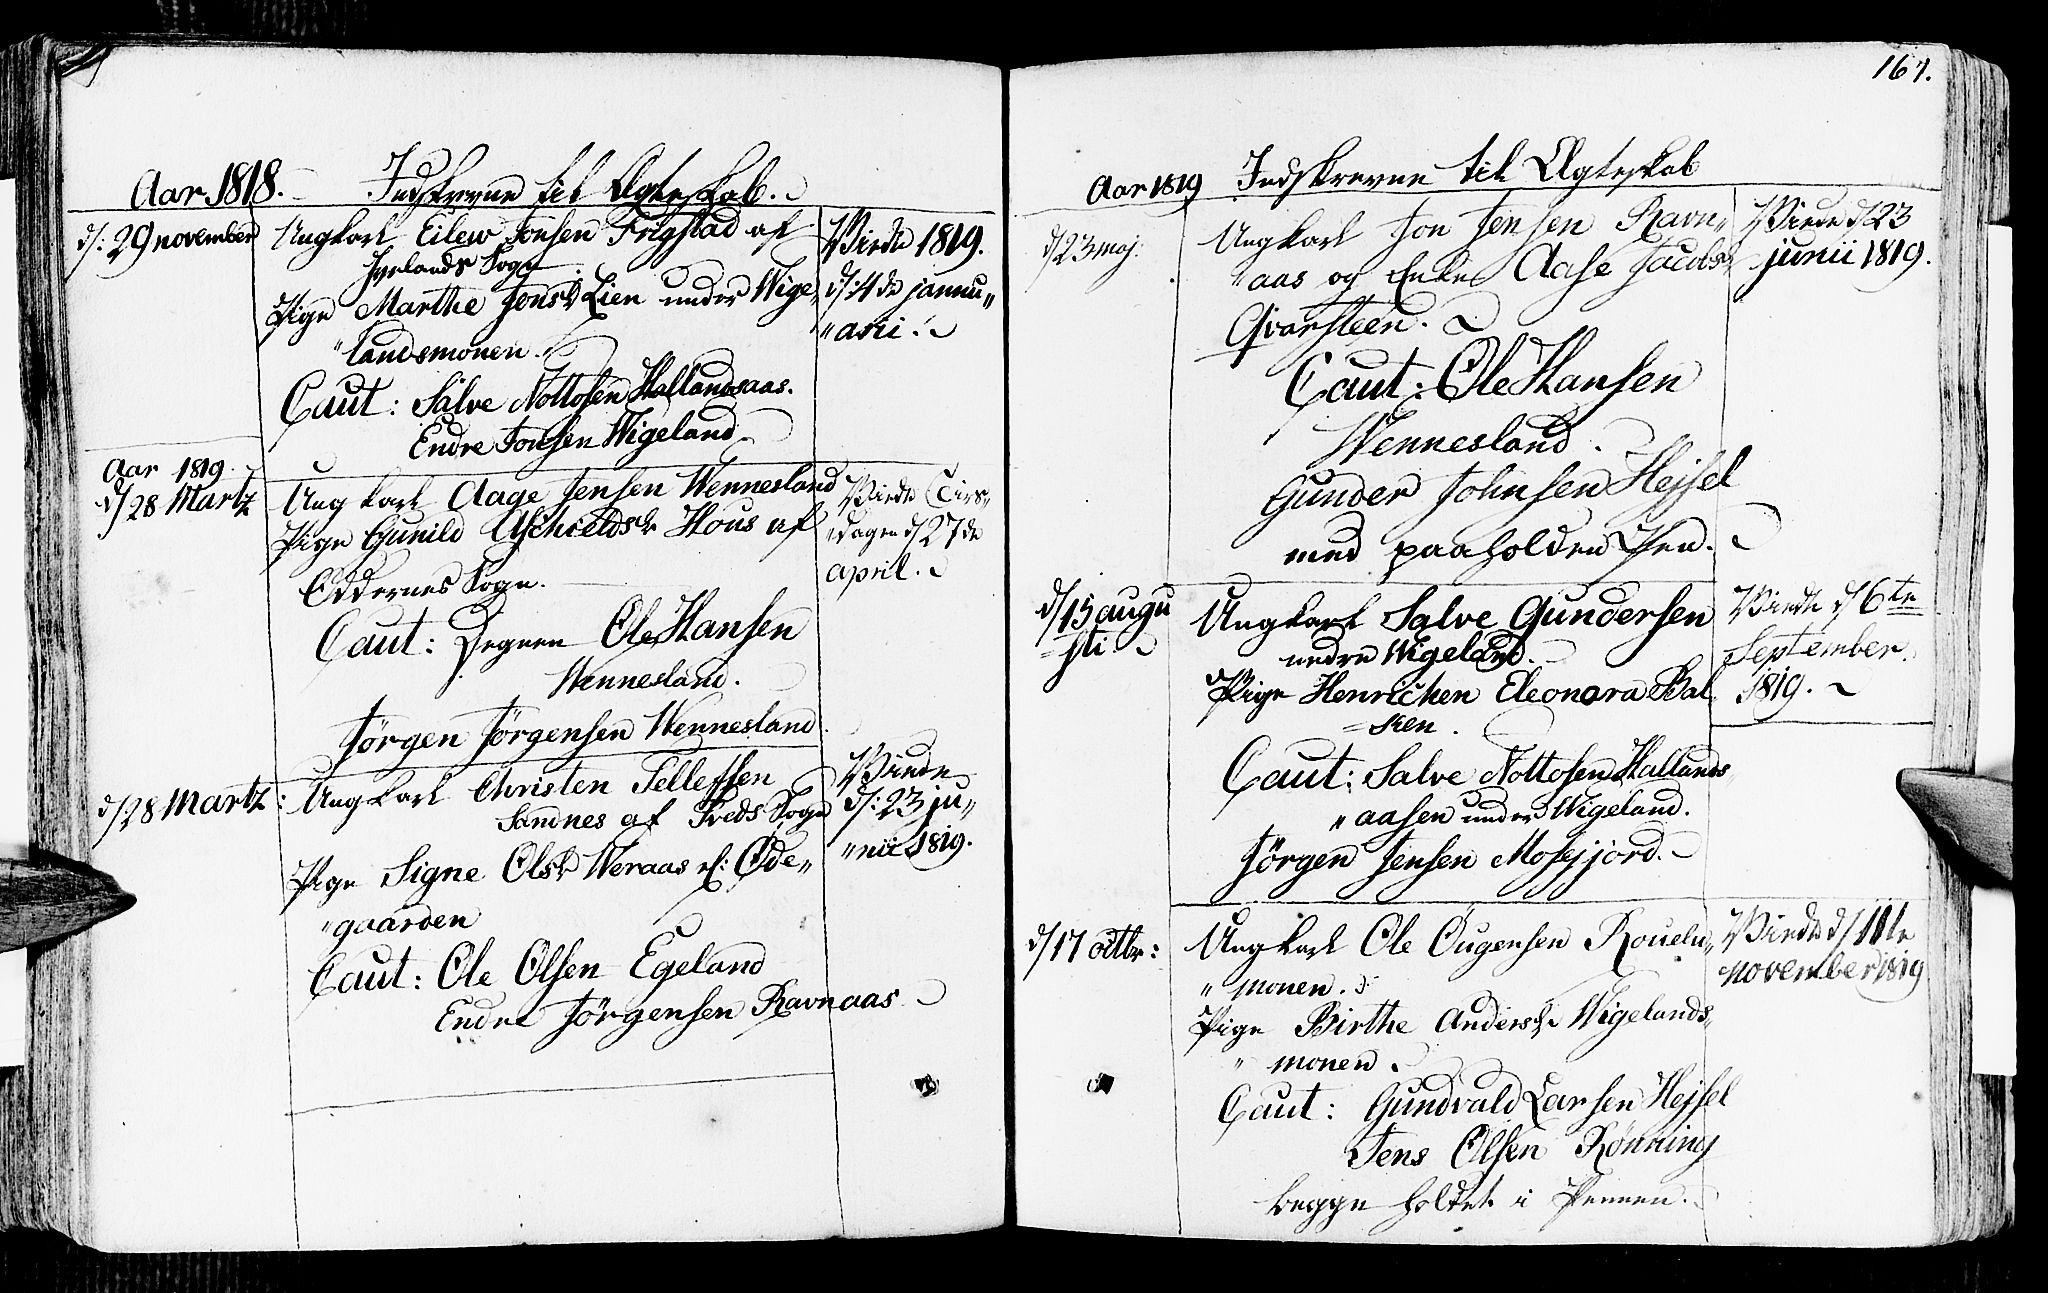 Aar 1818. Indskrevne til Ægteskab.
d/: 29 november Ungkarl Eilew Jonsen Frigstad af
Ivelands Sogn
Pige Marthe Jonsd Lien under Wige„
„landsmonen.
Caut: Salve Nottosen Hallandsaas.
Endre Jonsen Wigeland.
Viede 1819.
d/: 4de jannu„
„arii.
Aar 1819.
d/28 Martz Ungkarl Aage Jensen Wennesland
Pige Gunild Aschieldsdr Hous af
Oddernes Sogn.
Caut: Degnen Ole Hansen
Wennesland.
Jørgen Jørgensen Wennesland.
Viede Tirs„
„dagen d/27de
april.
d/28 Martz: Ungkarl Christen Tellefsen
Sandnes af Treds Sogn
Pige Signe Olsdr Weraas Øde„
„gaarden
Caut: Ole Olsen Egeland
Endre Jørgensen Ravnaas
Viede
d/: 23 ju„
„nii 1819.
167.
Aar 1819 Indskrevne til Ægteskab
d/23 maj: Ungkarl Jon Jensen Ravn„
„aas og Enke Aase Jacobsd
Qvarsteen.
Caut: Ole Hansen
Wennesland.
Gunder Johnsen Hejsel
med paaholden Pen.
Viede d/23
junii 1819.
d/15 augu
=sti Ungkarl Salve Gundersen
nedre Wigeland.
Pige Henrichen Eleonora Bal
=ken.
Caut: Salve Nottosen Hallands„
„aasen under Wigeland.
Jørgen Jensen Mosejord.
Viede d/6te
September
1819.
d/17 octbr: Ungkarl Ole Ougensen Roueln„
„monen.
Pige Birthe Andersdr Wigelands„
„monen.
Caut: Gundvald Larsen Hejsel
Jens Olsen Rønning
begge holdet i Pennen.
Viede d/11te
november 1819